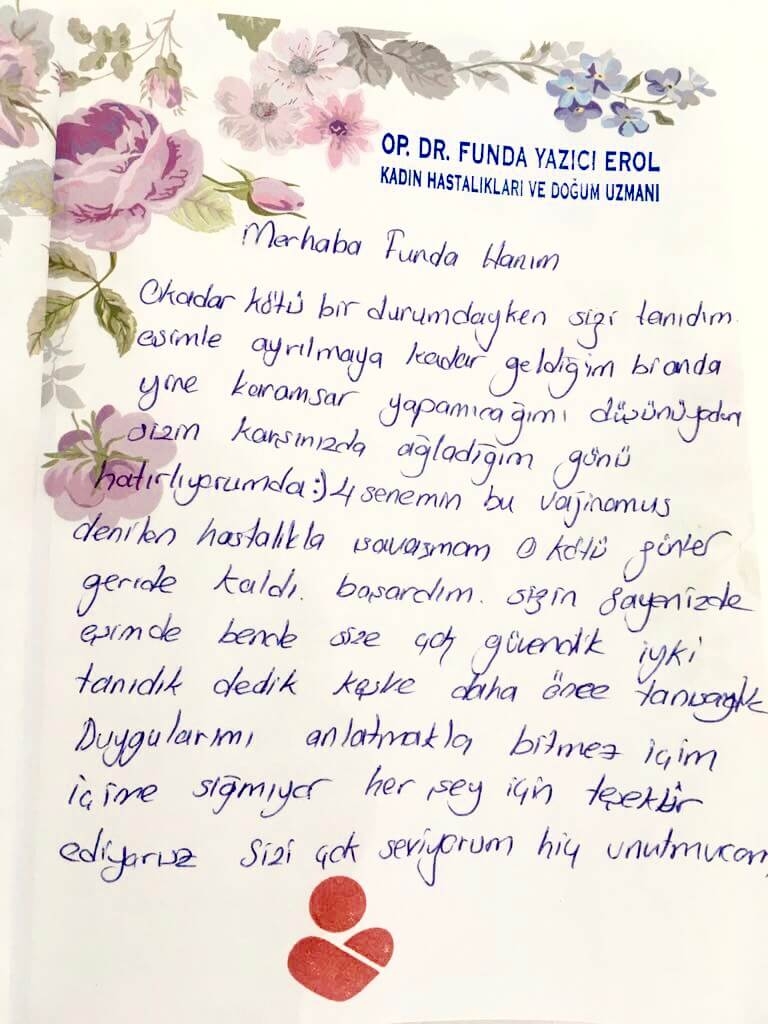 OP. DR. FUNDA YAZICI EROL
KADIN HASTALIKLARI VE DOĞUM UZMANI
Merhaba Funda Hanım
Okadar kötü bir durumdayken sizi tanıdım.
eşimle ayrılmaya kadar geldiğim bi anda
yine karamsar yapamıcağımı düşünüyodum
sizin karşınızda ağladığım günü
hatırlıyorumda:) 4 senemin bu vajinamus
denilen hastalıkla savaşmam o kötü günler
geride kaldı. başardım. sizin sayenizde
eşimde bende size çok güvendik iyki
tanıdık dedik keşke daha önce tanısaydık
Duygularımı anlatmakla bitmez içim
içime sığmıyor her şey için teşekkür
ediyoruz sizi çok seviyorum hiç unutmucam